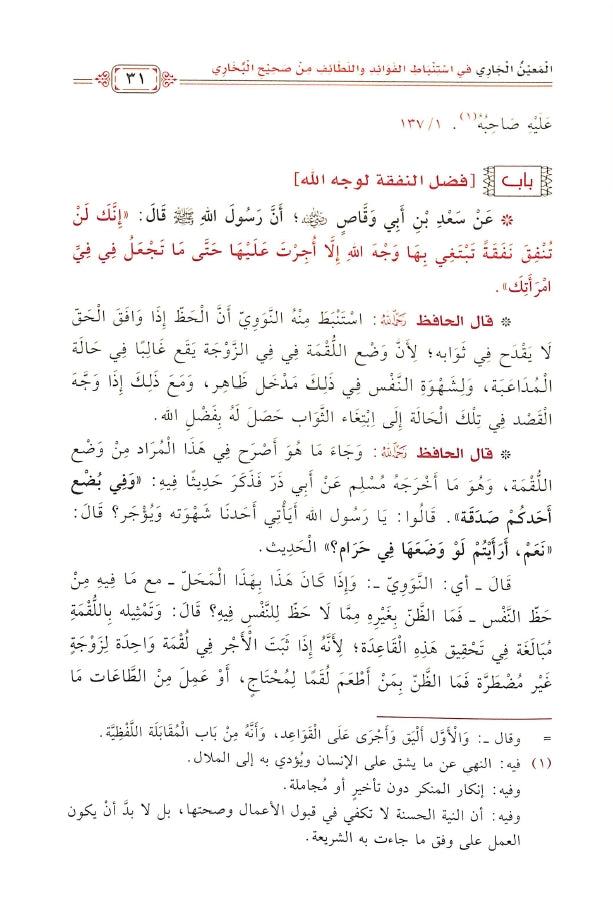 الْمَعِيْنُ الْجَارِي فِي اسْتِنْبَاطِ الْفَوَائِدِ وَاللَّطَائِفِ مِنْ صَحِيْحِ الْبُخَارِي
٣١
عَلَيْهِ صَاحِبُهُ(١). ١/ ١٣٧
باب [فضل النفقة لوجه الله]
* عَنْ سَعْدِ بْنِ أَبِي وَقَّاصٍ رضي الله عنه؛ أَنَّ رَسُولَ اللهِ ﷺ قَالَ: «إِنَّكَ لَنْ
تُنْفِقَ نَفَقَةً تَبْتَغِي بِهَا وَجْهَ اللهِ إِلَّا أُجِرْتَ عَلَيْهَا حَتَّى مَا تَجْعَلُ فِي فِيِّ
امْرَأَتِكَ».
* قال الحافظ رحمه الله: اسْتَنْبَطَ مِنْهُ النَّوَوِيّ أَنَّ الْحَظّ إِذَا وَافَقَ الْحَقّ
لَا يَقْدَح فِي ثَوَابه؛ لِأَنَّ وَضْع اللُّقْمَة فِي فِي الزَّوْجَة يَقَع غَالِبًا فِي حَالَة
الْمُدَاعَبَة، وَلِشَهْوَةِ النَّفْس فِي ذَلِكَ مَدْخَل ظَاهِر، وَمَعَ ذَلِكَ إِذَا وَجَّهَ
الْقَصْد فِي تِلْكَ الْحَالَة إِلَى اِبْتِغَاء الثَّوَاب حَصَلَ لَهُ بِفَضْلِ الله.
* قال الحافظ رحمه الله: وَجَاءَ مَا هُوَ أَصْرَح فِي هَذَا الْمُرَاد مِنْ وَضْع
اللُّقْمَة، وَهُوَ مَا أَخْرَجَهُ مُسْلِم عَنْ أَبِي ذَرّ فَذَكَرَ حَدِيثًا فِيهِ: «وَفِي بُضْع
أَحَدكُمْ صَدَقَة». قَالُوا: يَا رَسُول الله أَيَأْتِي أَحَدنَا شَهْوَته وَيُؤْجَر؟ قَالَ:
«نَعَمْ، أَرَأَيْتُمْ لَوْ وَضَعَهَا فِي حَرَام؟» الْحَدِيث.
قَالَ ـ أي: النَّوَوِيّ ـ: وَإِذَا كَانَ هَذَا بِهَذَا الْمَحَلّ ـ مع مَا فِيهِ مِنْ
حَظّ النَّفْس ـ فَمَا الظَّنّ بِغَيْرِهِ مِمَّا لَا حَظّ لِلنَّفْسِ فِيهِ؟ قَالَ: وَتَمْثِيله بِاللُّقْمَةِ
مُبَالَغَة فِي تَحْقِيق هَذِهِ الْقَاعِدَة؛ لِأَنَّهُ إِذَا ثَبَتَ الْأَجْر فِي لُقْمَة وَاحِدَة لِزَوْجَةٍ
غَيْر مُضْطَرَّة فَمَا الظَّنّ بِمَنْ أَطْعَمَ لُقَمًا لِمُحْتَاجٍ، أَوْ عَمِلَ مِنْ الطَّاعَات مَا
= وقال ـ: وَالْأَوَّل أَلْيَق وَأَجْرَى عَلَى الْقَوَاعِد، وَأَنَّهُ مِنْ بَاب الْمُقَابَلَة اللَّفْظِيَّة.
(١) فيه: النهي عن ما يشق على الإنسان ويُؤدي به إلى الملال.
وفيه: إنكار المنكر دون تأخيرٍ أو مُجاملة.
وفيه: أن النية الحسنة لا تكفي في قبول الأعمال وصحتها، بل لا بدَّ أنْ يكون
العمل على وفق ما جاءت به الشريعة.